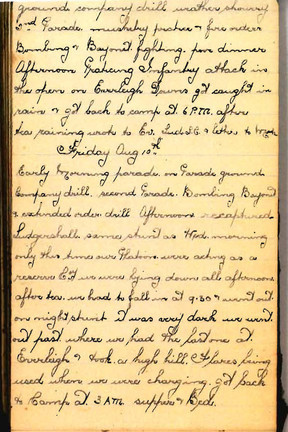 ground company drill weather showery
2nd Parade. musketry practice & fire orders
Bombing & Bayonet fighting. for dinner
Afternoon Infantry attack in
the open on Everleigh Downs got caught in
rain & got back to camp at 6 P.M. after
tea raining wrote to Ev. Lud & letter to
Friday Aug 10th
Early Morning parade. on Parade ground
Company drill, second Parade. Bombing Bayonet
& extended order drill Afternoon recaptured
Ludgershall same stunt as Wed. morning
only this time our Platoon were acting as a
reserve & we were lying down all afternoon
after tea. we had to fall in at 9.30 & went out
on night stunt it was very dark we went
out past where we had the last one at
Everleigh & took a high hill. Flares being
used when we were charging. got back
to Camp at 3 AM. supper & Bed.